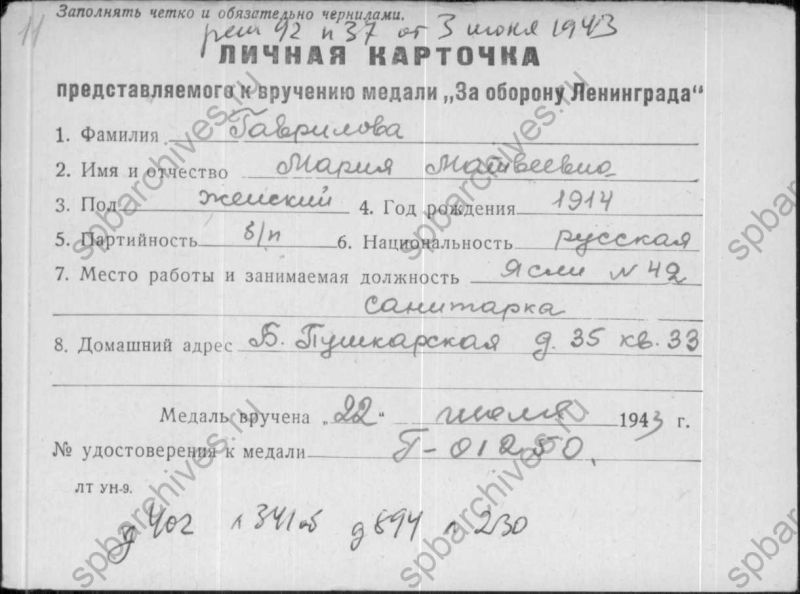 Заполнять четко и обязательно чернилами.
11
реш 92 п 37 от 3 июня 1943
ЛИЧНАЯ КАРТОЧКА
представляемого к вручению медали „За оборону Ленинграда“
1. Фамилия Гаврилова
2. Имя и отчество Мария Матвеевна
3. Пол женский 4. Год рождения 1914
5. Партийность б/п 6. Национальность русская
7. Место работы и занимаемая должность Ясли N 42
санитарка
8. Домашний адрес Б. Пушкарская д. 35 кв. 33
Медаль вручена „22“ июля 1943 г.
№ удостоверения к медали Г-01250.
ЛТ УН-9.
д 402 л 341об д 894 л 230
spbarchives.ru
spbarchives.ru
spbarchives.ru
spbarchives.ru
spbarchives.ru